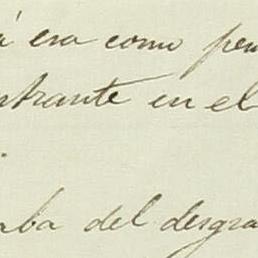 á era como pen
ntrante en el
.
aba del desgra